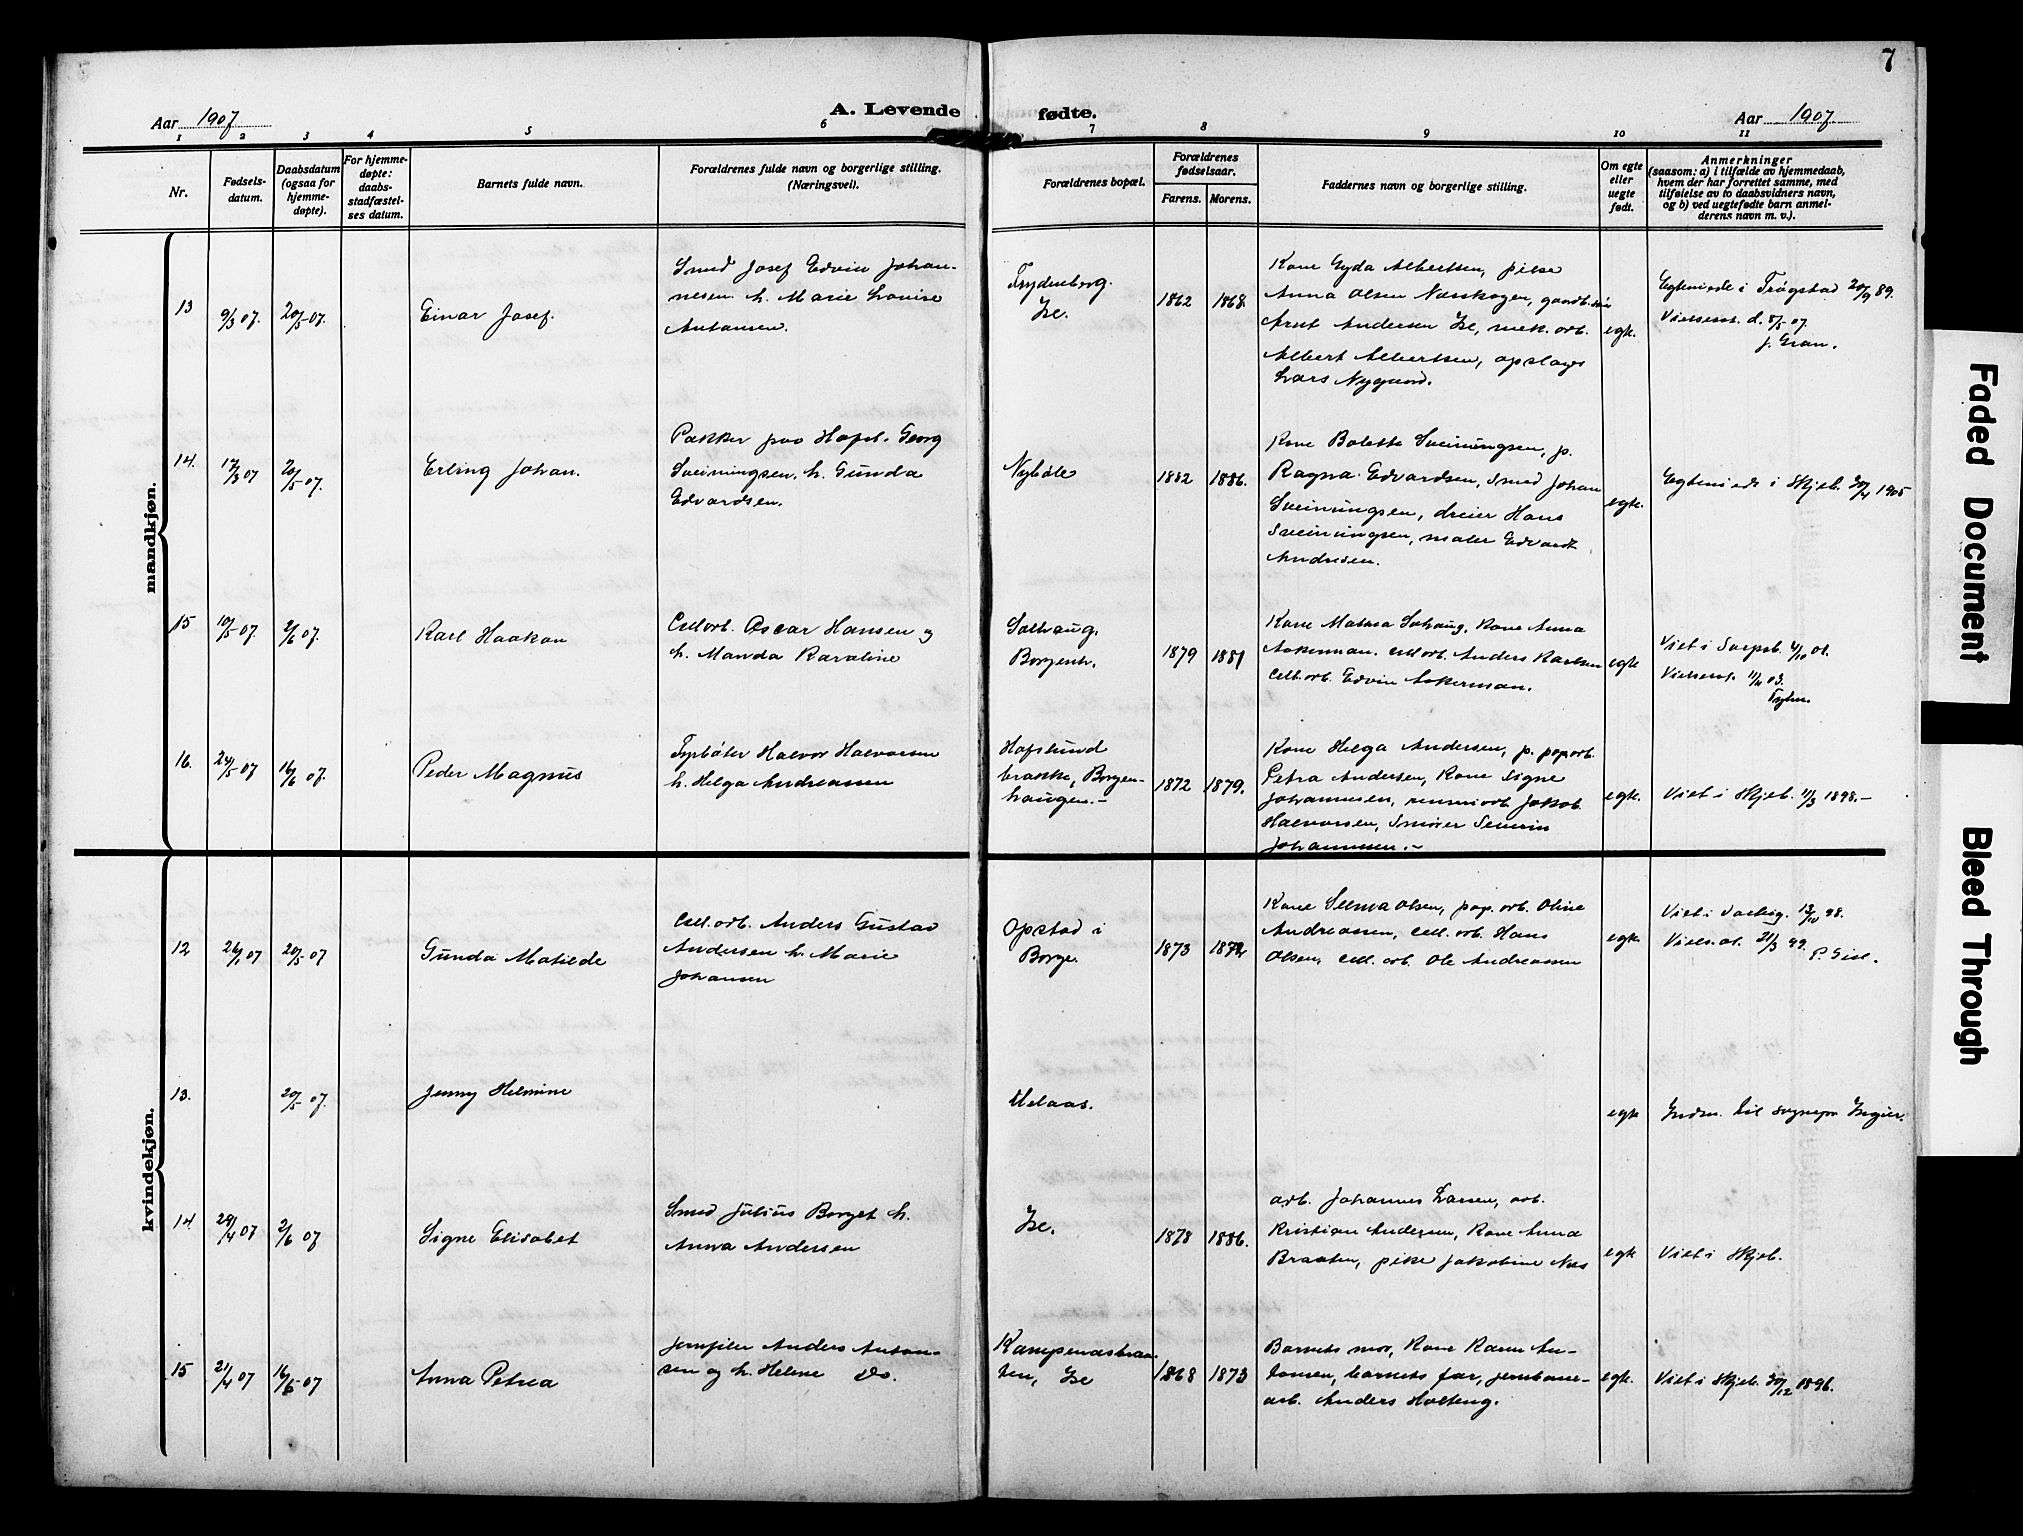 7
Aar 1907
A. Levende fødte.
Aar 1907
1 2 3 4 5 6 7 8 9 10 11
Nr.
Fødsels-
datum.
Daabsdatum
(ogsaa for
hjemme-
døpte).
For hjemme-
døpte:
daabs-
stadfæstel-
ses datum.
Barnets fulde navn.
Forældrenes fulde navn og borgerlige stilling.
(Næringsvei).
Forældrenes bopæl.
Forældrenes
fødselsaar.
Farens. Morens.
Faddernes navn og borgerlige stilling.
Om egte
eller
uegte
født.
Anmerkninger
(saasom: a) i tilfælde av hjemmedaab,
hvem der har forrettet samme, med
tilføielse av to daabsvidners navn,
og b) ved uegtefødte barn anmel-
derens navn m. v.).
mandkjøn.
13
9/3 07.
20/5 07.
Einar Josef.
Smed Josef Edvin Johan-
nesen h. Marie Lovise
Antonsen.
Frydenberg.
Ise.
1862
1868.
Kone Gyda Albertsen, pike
Anna Olsen Næsskogen, gaardb.
Arnt Andersen Ise, mek. arb.
Albert Albertsen, opslags
Lars Nygaard.
egte.
Egteviede i Trøgstad 20/9 89.
Vielsesat. d. 8/5 07.
J. Gran.
14.
17/3 07
20/5 07.
Erling Johan.
Pakker paa Hafsl. Georg
Sveinungsen. h. Gunda
Edvardsen.
Nybøle
1882
1886.
Kone Bolette Sveinungsen, p.
Ragna Edvardsen, smed Johan
Sveinungsen, dreier Hans
Sveinungsen, maler Edvardt
Andresen.
egte.
Egteviede i Skjeb. 30/4 1905
15
10/5 07.
2/6 07.
Karl Haakon
Cell. arb. Oscar Hansen og
h. Manda Karoline
Solhaug.
Borgenh.
1879
1881
Kone Matnea Sohaug, Kone Anna
Askerman. cell. arb. Anders Karlsen
cell. arb. Edvin Askerman.
egte
Viet i Sarpsb. 4/10 01.
Vielsesat. 11/11 03.
16.
24/5 07
16/6 07.
Peder Magnus
Fyrbøter Halvor Halvorsen
h. Helga Andreassen
Hafslund
brakke, Borgen-
haugen.-
1872
1879.
Kone Helga Andersen, p. pap. arb.
Petra Andersen, Kone Signe
Johannesen, renseriarb. Jakob
Halvorsen, Smører Severin
Johannesen.-
egte.
Viet i Skjeb. 11/3 1898.-
kvindekjøn.
12
26/1 07
20/5 07
Gunda Matilde
Cell. arb. Anders Gustav
Andersen h. Marie
Johansen
Opstad i
Borge.
1873
1872
Kone Selma Olsen, pap. arb. Oline
Andreassen, cell. arb. Hans
Olsen, cell. arb. Ole Andreassen
egte.
Viet i Varteig. 13/10 98.
Viels. at. 21/3 99.
13.
20/5 07.
Jenny Helmine
Utlaas.
egte
Indm. til sognepr.
14.
28/4 07
2/6 07
Signe Elisabet
Smed Julius Borget h.
Anna Andersen
Ise.
1878
1886.
arb. Johannes Larsen, arb.
Kristian Andersen, Kone Anna
Braaten, pike Jakobine Næs
egte
Viet i Skjeb.
15
21/4 07
16/6 07
Anna Petrea
Jernfiler Anders Anton-
sen og h. Helene do.
Kampenesbraa-
ten, Ise
1868
1873
Barnets mor, Kone Karen An-
tonsen, barnets far, jernbane-
arb. Anders Holteng.
egte.
Viet i Skjeb. 30/12 1896.
Faded Document
Bleed Through